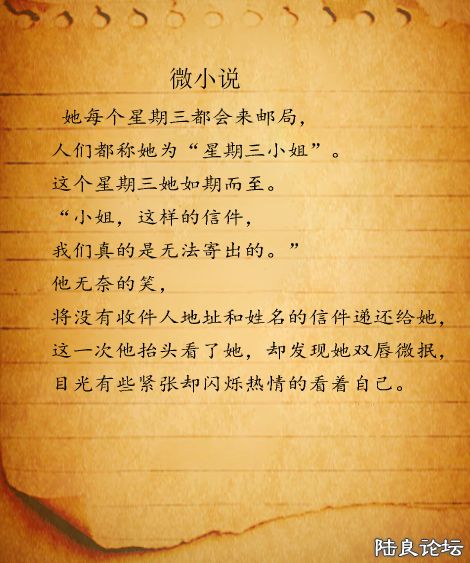 微小说
她每个星期三都会来邮局，
人们都称她为“星期三小姐”。
这个星期三她如期而至。
“小姐，这样的信件，
我们真的是无法寄出的。”
他无奈的笑，
将没有收件人地址和姓名的信件递还给她，
这一次他抬头看了她，却发现她双唇微抿，
目光有些紧张却闪烁热情的看着自己。
陆良论坛